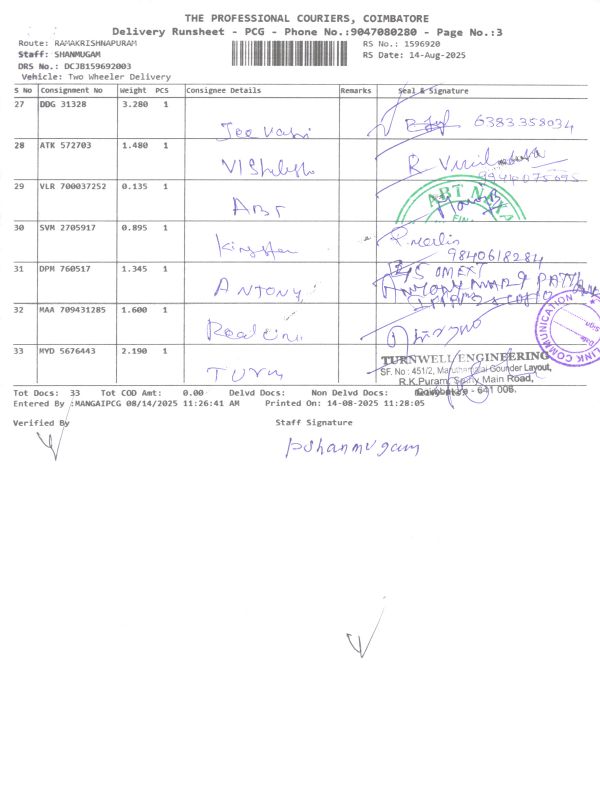 THE PROFESSIONAL COURIERS, COIMBATORE
Delivery Runsheet - PCG - Phone No.:9047080280 - Page No.:3
Route: RAMAKRISHNAPURAM
RS No.: 1596920
Staff: SHANMUGAM
RS Date: 14-Aug-2025
DRS No.: DCJ8159692003
Vehicle: Two Wheeler Delivery
S No Consignment No Weight PCS Consignee Details Remarks Seal & Signature
27 DDG 31328 3.280 1
Jeevahi 6383358034
28 ATK 572703 1.480 1
R
29 VLR 700037252 0.135 1
ABT
30 SVM 2705917 0.895 1
9840618284
31 DPM 760517 1.345 1
ANTONY
32 MAA 709431285 1.600 1
LINK COMMUNICATION
33 MYD 5676443 2.190 1
TURNWELL ENGINEERING
SF. No : 451/2, Gounder Layout,
R.K.Puram, Main Road,
Coimbatore - 641 006.
Tot Docs: 33 Tot COD Amt: 0.00 Delvd Docs: Non Delvd Docs:
Entered By :MANGAIPCG 08/14/2025 11:26:41 AM Printed On: 14-08-2025 11:28:05
Verified By Staff Signature
pshanmugam